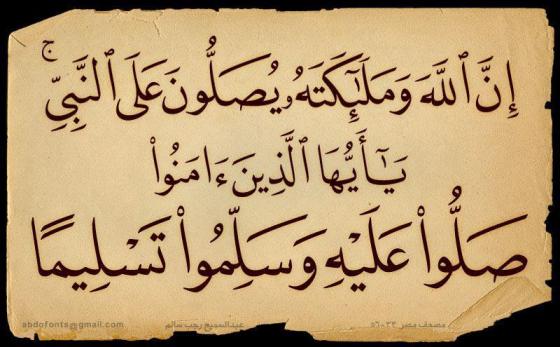 إِنَّ ٱللَّهَ وَمَلَٰٓئِكَتَهُۥ يُصَلُّونَ عَلَى ٱلنَّبِيِّۚ
يَٰٓأَيُّهَا ٱلَّذِينَ ءَامَنُوا۟
صَلُّوا۟ عَلَيْهِ وَسَلِّمُوا۟ تَسْلِيمًا
abdofonts@gmail.com عبدالسميع رجب سالم مصحف مصر